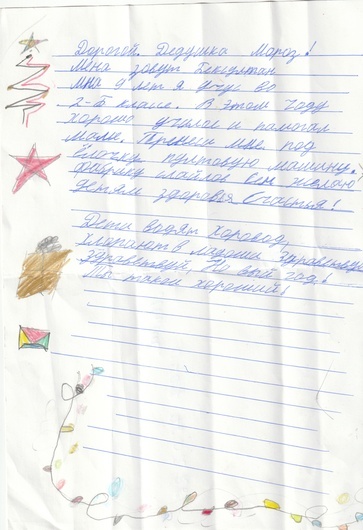 Дорогой. Дедушка Мороз!
Меня зовут Бексултан
мне 9 лет я учус во
2-Б классе. В этом году
хорошо учился и помогал
маме. Принеси мне под
ёлочку пултовую машину.
фабрику слаймов всем желаю
детям здоровья счастья!
Дети водят хоровод,
хлопают в ладоши Здравствуй
здравствуй, Новый год!
Ты такой хороший!